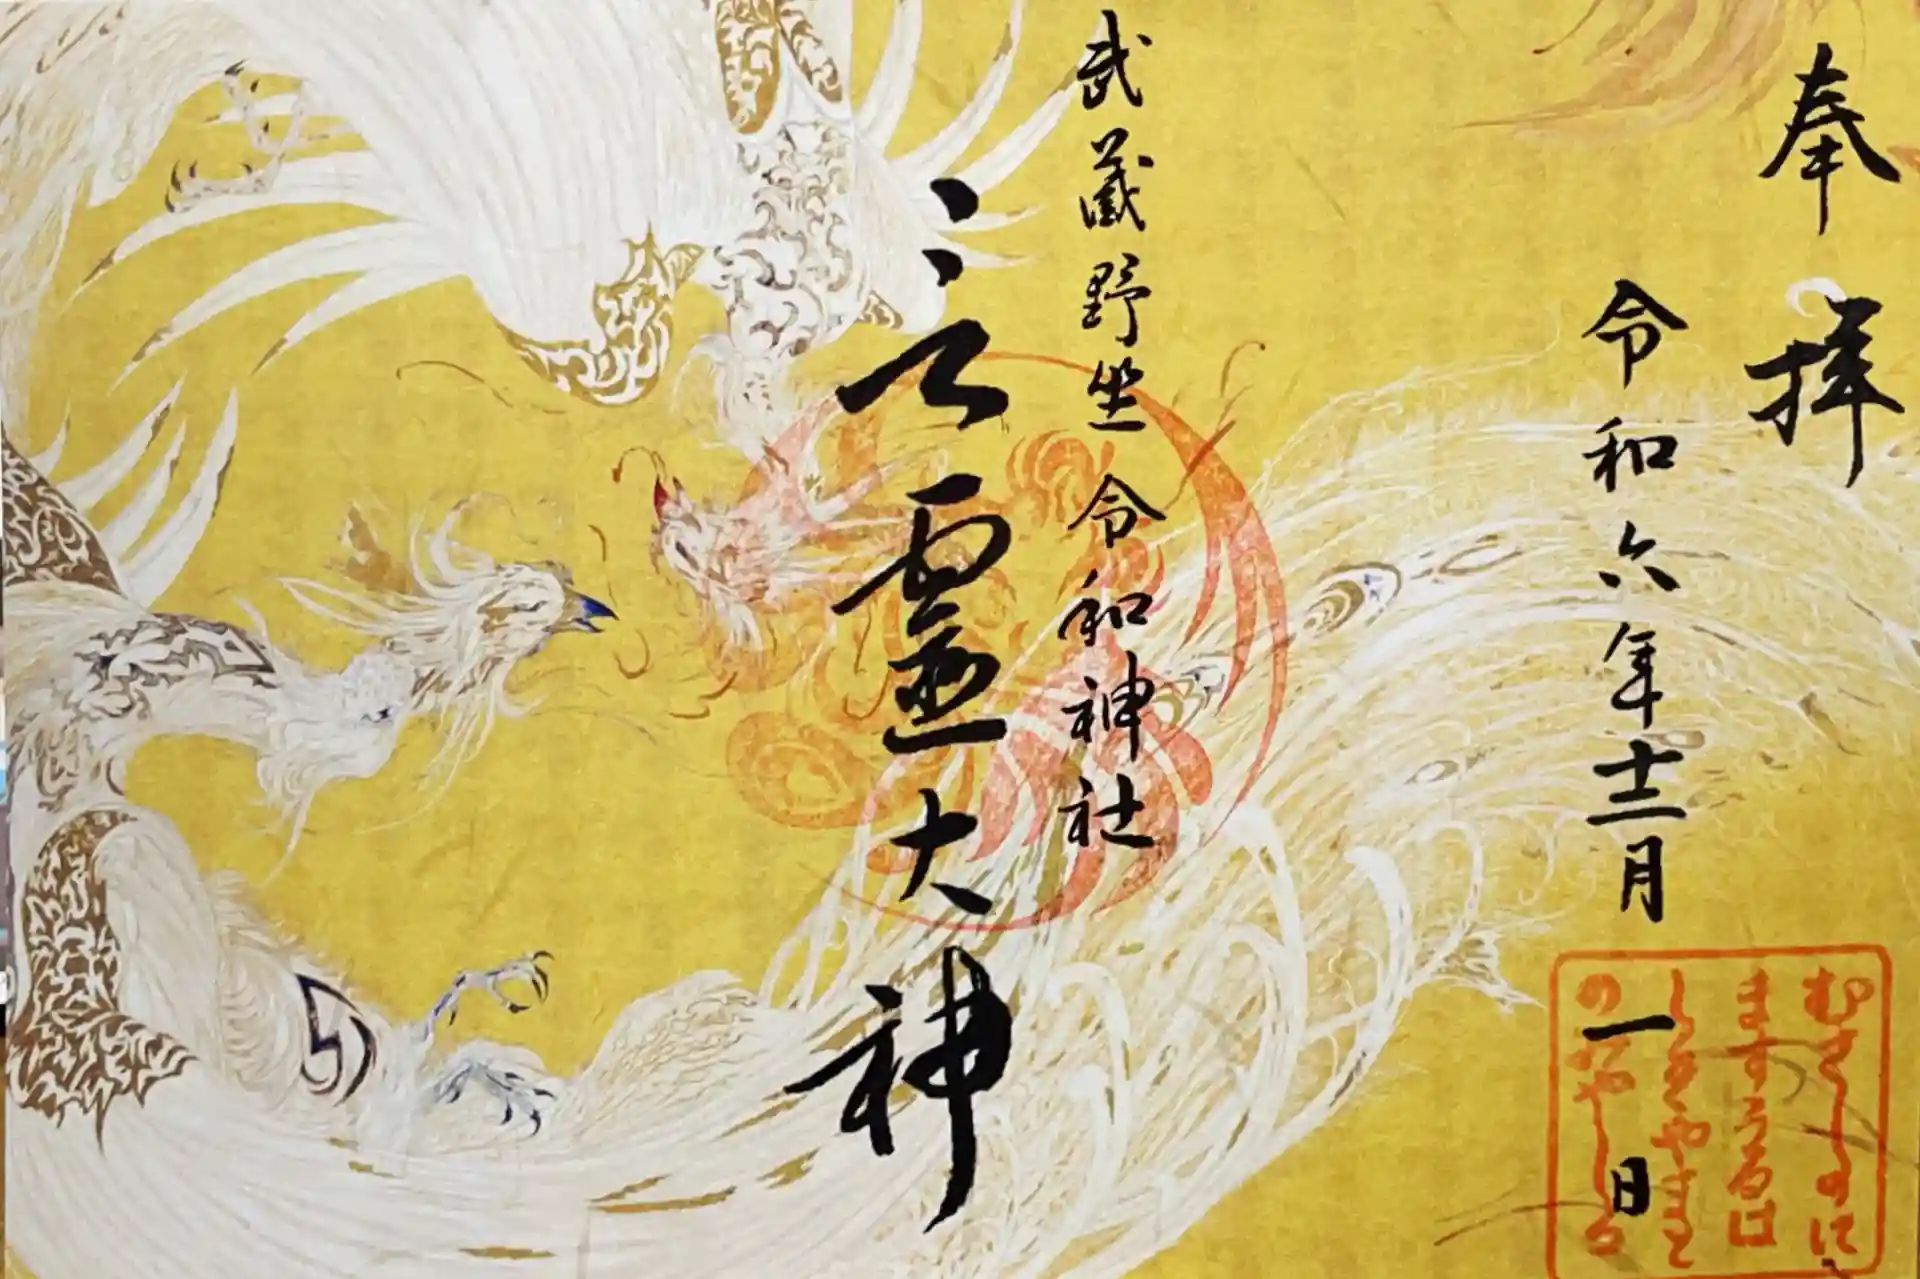 奉拝
令和六年十二月一日
むさしのに
ますうるは
しきやまと
のみやしろ
武蔵野坐令和神社
言霊大神